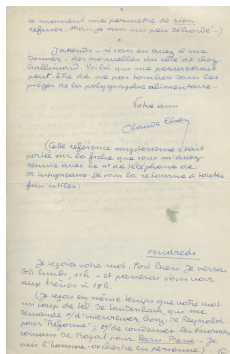 ce moment me permette de rien
refuser. Mais je suis un peu débordé...)
J'attends - si vous en avez à me
donner - des nouvelles du côté de chez
Gallimard. Voilà qui me permettrait
peut-être de ne pas tomber dans les
pièges de la polygraphie alimentaire...
Votre ami
Claude
(Cette référence mystérieuse était
portée sur la fiche que vous m'avez
remise avec le n° de téléphone de
Je vous la retourne à toutes
fins utiles)
vendredi
Je reçois votre mot. Fort bien. Je verrai
11h - et passerai vous voir
aux à 18h.
(Je reçois en même temps que votre mot
un coup de tél. de qui me
demande d'interviewer Gary, de
pour "Réforme"; de condenser les
romans de pour Paris-Presse. Je
suis l'homme-orchestre en personne!)